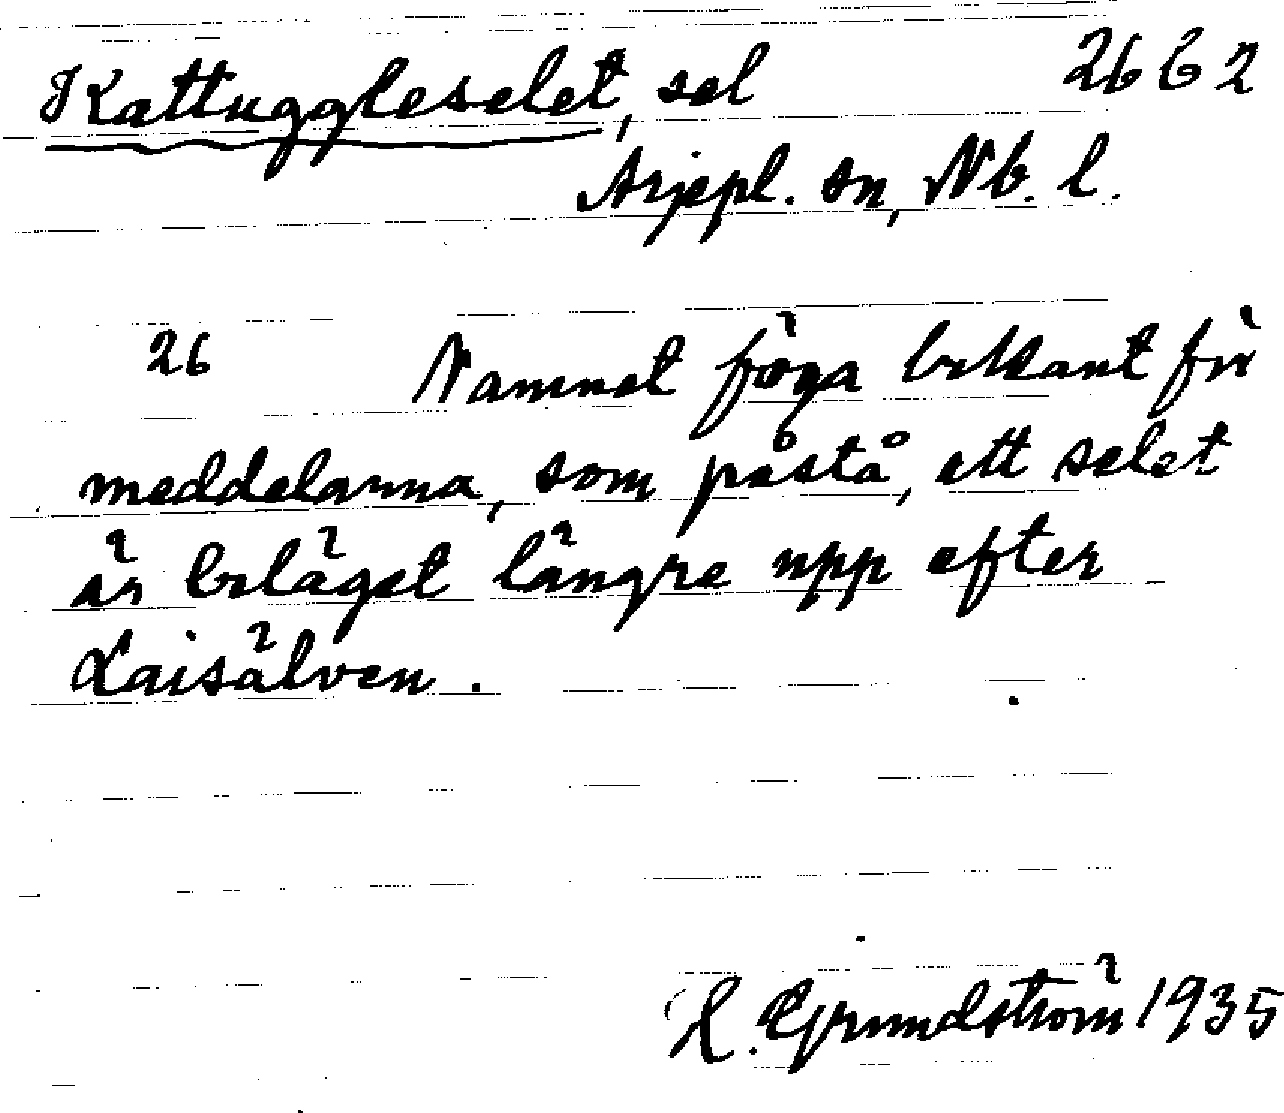 Kattuggleselet, sel 26 G 2
Arjepl. sn, Nb. l.
26 Namnet föga bekant för
meddelarna, som påstå, att selet
är beläget längre upp efter
Laisälven.
H. Grundström 1935